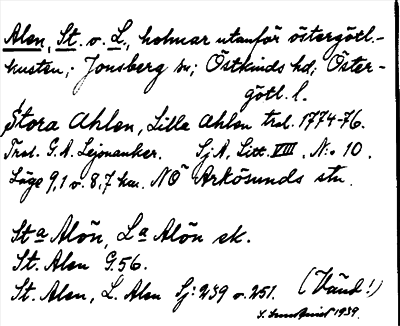 Alen, St. o. L., holmar utanför östergötl.-
kusten; Jonsberg sn; Östkinds hd; Öster-
götl. l.
Stora Ahlen, Lilla Ahlen trol. 1774-76.
Trol. G.A. Lejonanker. Sj.A. Litt. VIII. N:o 10.
Läge 9,1 o. 8,7 km. NÖ Arkösunds stn.
Sta Alön, La Alön ek.
St. Alen G.56.
St. Alen, L. Alen Sj: 239 o. 251. (Vänd!)
1939.